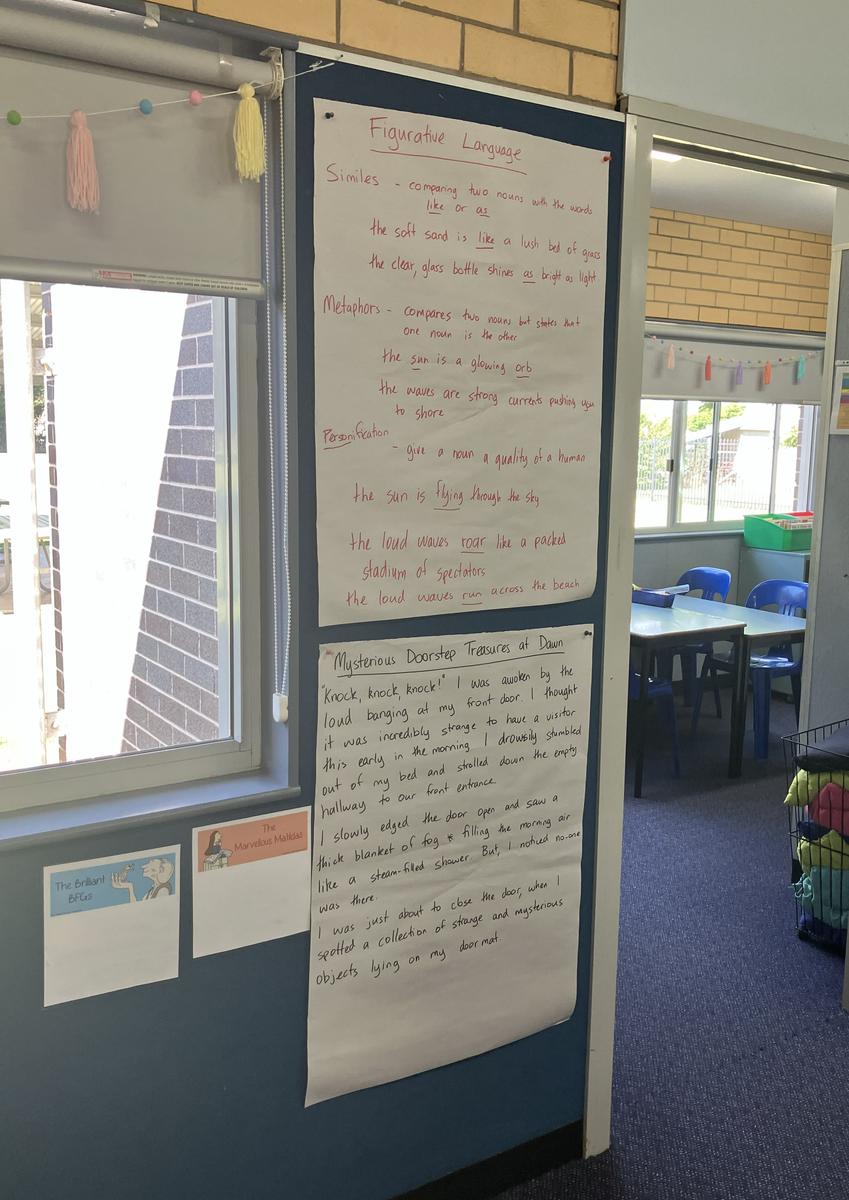 Figurative Language
Similes - comparing two nouns with the words
like or as
the soft sand is like a lush bed of grass
the clear, glass bottle shines as bright as light.
Metaphors - compares two nouns but states that
one noun is the other
the sun is a glowing orb
the waves are strong currents pushing you
to shore
Personification
- give a noun a quality of a human
the sun is flying through the sky
the loud waves roar like a packed
stadium of spectators
the loud waves run across the beach
Mysterious Doorstep Treasures at Dawn
"Knock, knock, knock!" I was awoken by the
loud banging at my front door. I thought
it was incredibly strange to have a visitor
this early in the morning. I drowsily stumbled
out of my bed and strolled down the empty
hallway to our front entrance.
I slowly edged the door open and saw a
thick blanket of fog filling the morning air
like a steam-filled shower. But, I noticed no-one
was there.
I was just about to close the door, when I
spotted a collection of strange and mysterious
objects lying on my door mat.
The Brilliant
BFGs
The
Marvellous Matildas